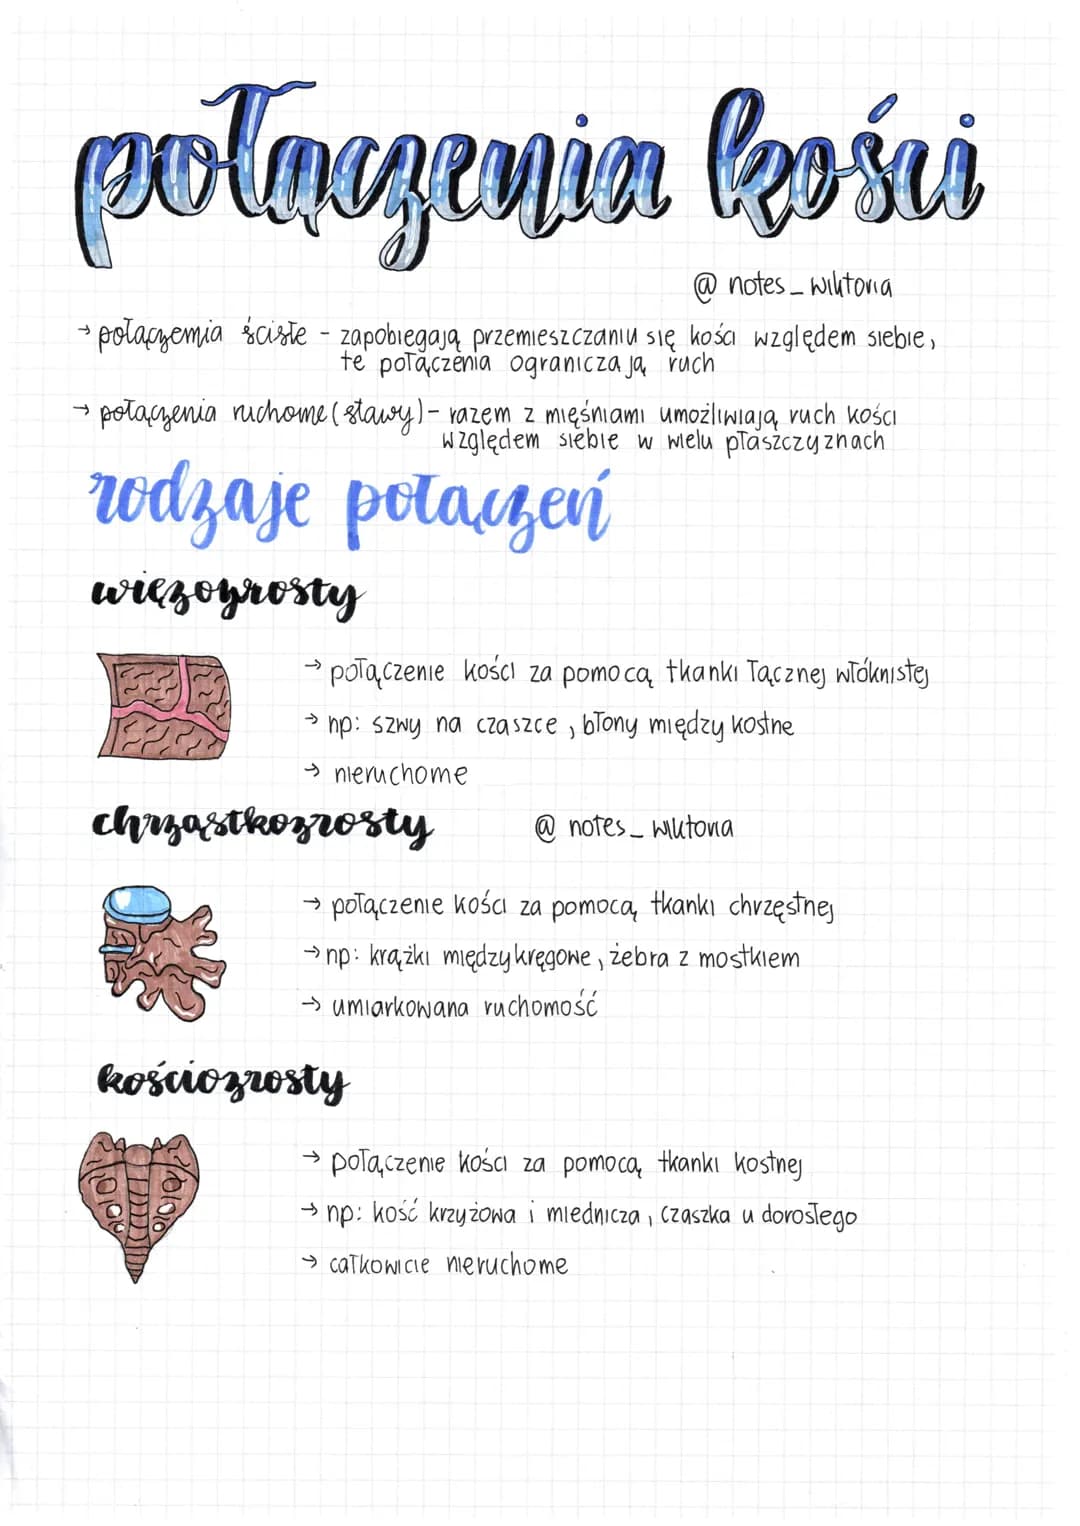 połączenia kości
@ notes_wiktoria
→ połączemia ściste - zapobiegają przemieszczaniu się kości względem siebie,
te połączenia ograniczają ruch
→ połączenia ruchome (stawy) - razem z mięśniami umożliwiają ruch kości
względem siebie w wielu płaszczyznach
rodzaje połączeń
więzozrosty
→ połączenie kości za pomocą tkanki łącznej włóknistej
→ np: szwy na czaszce, błony między kostne
→ nieruchome
chrząstkozrosty
@ notes_wiktoria
→ połączenie kości za pomocą tkanki chrzęstnej
→ np: krążki międzykręgowe, żebra z mostkiem
→ umiarkowana ruchomość
kościozrosty
→ połączenie kości za pomocą tkanki kostnej
→ np: kość krzyżowa i miednicza, czaszka u dorosłego
→ całkowicie nieruchome